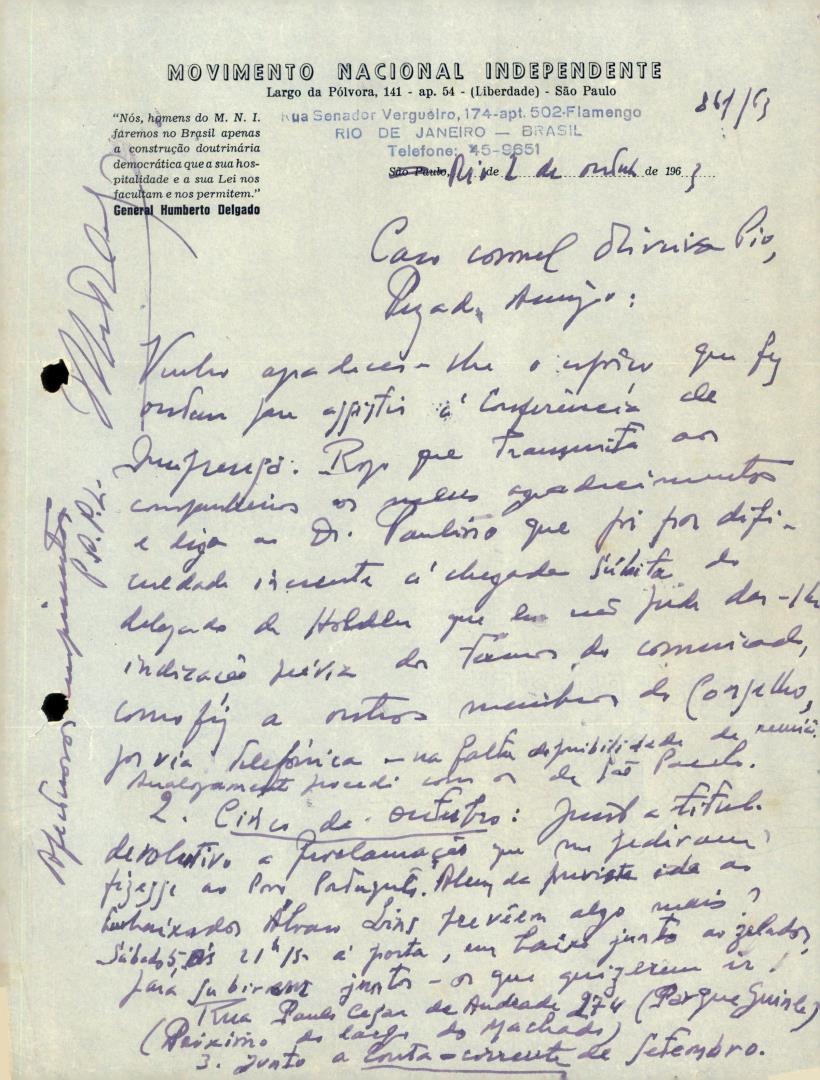 MOVIMENTO NACIONAL INDEPENDENTE
Largo da Pólvora, 141 - ap. 54 - (Liberdade) - São Paulo
"Nós, homens do M. N. I.
faremos no Brasil apenas
a construção doutrinária
democrática que a sua hos-
pitalidade e a sua Lei nos
facultam e nos permitem."
General Humberto Delgado
Rua Senador Vergueiro, 174-apt. 502-Flamengo
RIO DE JANEIRO — BRASIL
Telefone: 45-9651
861/63
São Paulo, Rio de 2 de outub de 1963
Caro coronel Oliveira Pio,
Prezado Amigo:
Venho agradecer-lhe o esforço que fez
ontem para assistir à Conferência de
Imprensa. Rogo que transmita aos
companheiros os meus agradecimentos
e diga ao Dr. Paulino que foi por difi-
culdade à chegada súbita do
delegado de que eu não pude dar-lhe
indicação prévia dos termos do comunicado,
como fiz a outros membros do Conselho,
por via telefónica - na falta disponibilidade de reunião.
Analogamente procedi com os de São Paulo.
2. Cinco de outubro: Junto a título
devolutivo a Proclamação que me pediram
fizesse ao Povo Português. Além da prevista ida ao
Embaixador Álvaro Lins prevêem algo mais?
Sábado 5 às 21h15 à porta, em baixo junto ao zelador,
para subirem juntos - os que quizerem ir!
Rua Paulo Cesar de Andrade 274 (Parque Guinle)
(Próximo do largo do Machado)
3. Junto a Conta-corrente de Setembro.
Afectuosos cumprimentos